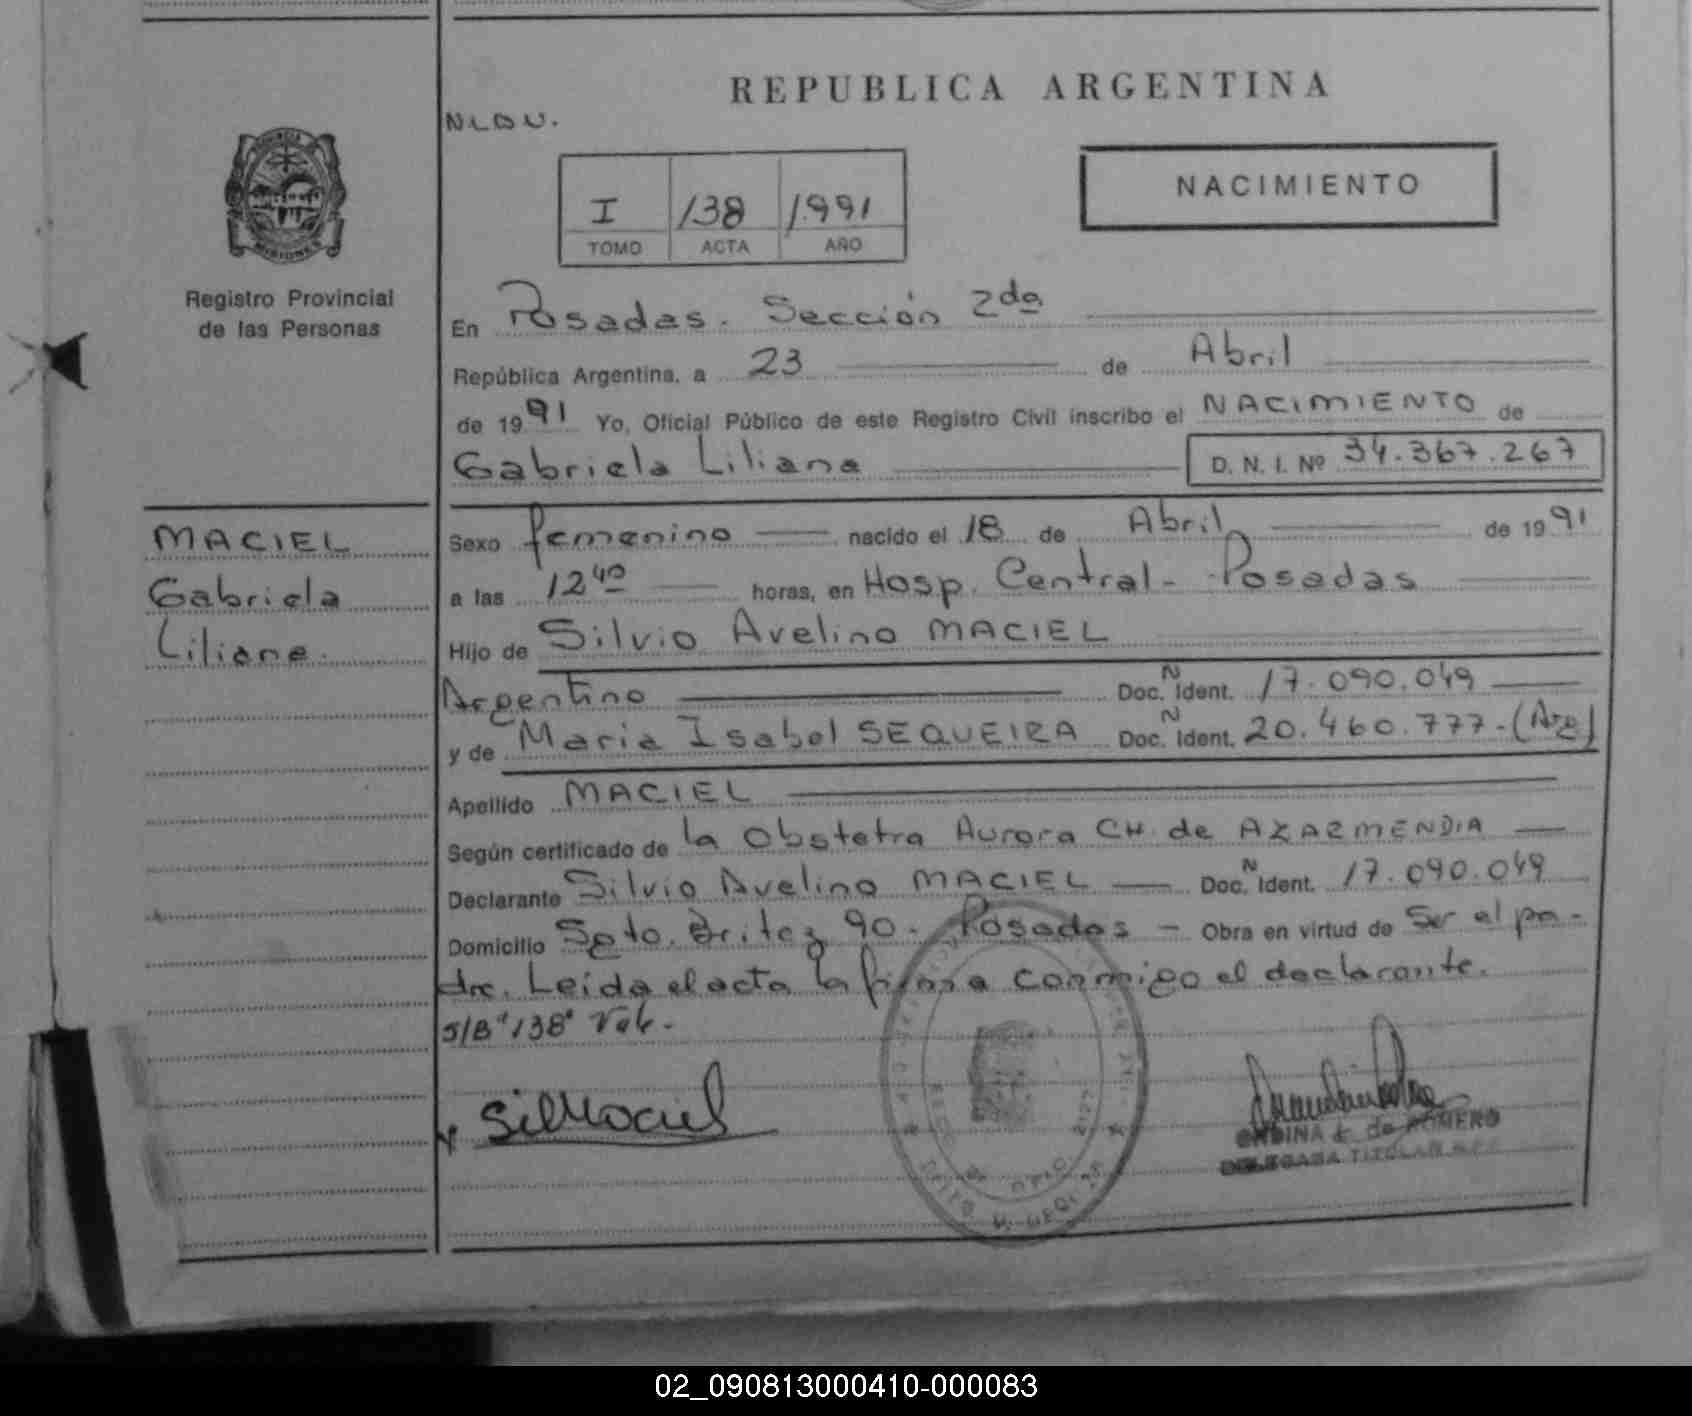 REPUBLICA ARGENTINA
N.L.D.V.
NACIMIENTO
I 138 1991
TOMO ACTA AÑO
PROVINCIA DE
MISIONES
Registro Provincial
de las Personas
En Posadas. Sección 2da
República Argentina, a 23 de Abril
de 1991 Yo, Oficial Público de este Registro Civil inscribo el NACIMIENTO de
Gabriela Liliana D. N. I. Nº 34.367.267
MACIEL
Gabriela
Liliana.
Sexo femenino nacido el 18 de Abril de 1991
a las 12 40 horas, en Hosp. Central - Posadas
Hijo de Silvio Avelino MACIEL
Argentino Doc. N Ident. 17.090.049
y de Maria Isabel SEQUEIRA Doc. N Ident. 20.460.777-(Arg)
Apellido MACIEL
Según certificado de la Obstetra Aurora CH. de AZARMENDIA
Declarante Silvio Avelino MACIEL Doc. N Ident. 17.090.049
Domicilio Sgto. Britez 90 - Posadas - Obra en virtud de Ser el pa-
dre. Leida el acta la firma conmigo el declarante.
S/B "138" Vale.
SilMaciel
ONDINA K. de ROMERO
DELEGADA TITULAR
02_090813000410-000083